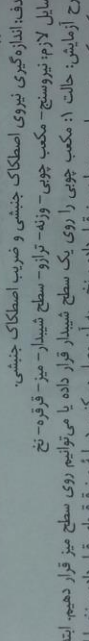 دف: اندازه گیری نیروی اصطکاک جنبشی و ضریب اصطکاک جنبشی.
سایل لازم: نیروسنج - مکعب چوبی - وزنه - ترازو - سطح شیبدار - میز - قرقره - نخ
ح آزمایش: حالت ۱: مکعب چوبی را روی یک سطح شیبدار قرار داده یا می‌توانیم روی سطح میز قرار دهیم. ابتد